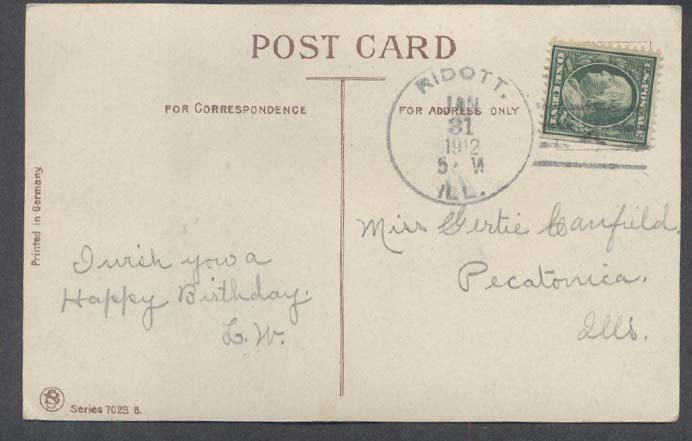 POST CARD
FOR CORRESPONDENCE
FOR ADDRESS ONLY
RIDOTT.
JAN
31
1912
ILL.
Printed in Germany
I wish you a
Happy Birthday.
L. W.
Miss Gertie Canfield.
Pecatonica.
Ills.
Series 7023 B.